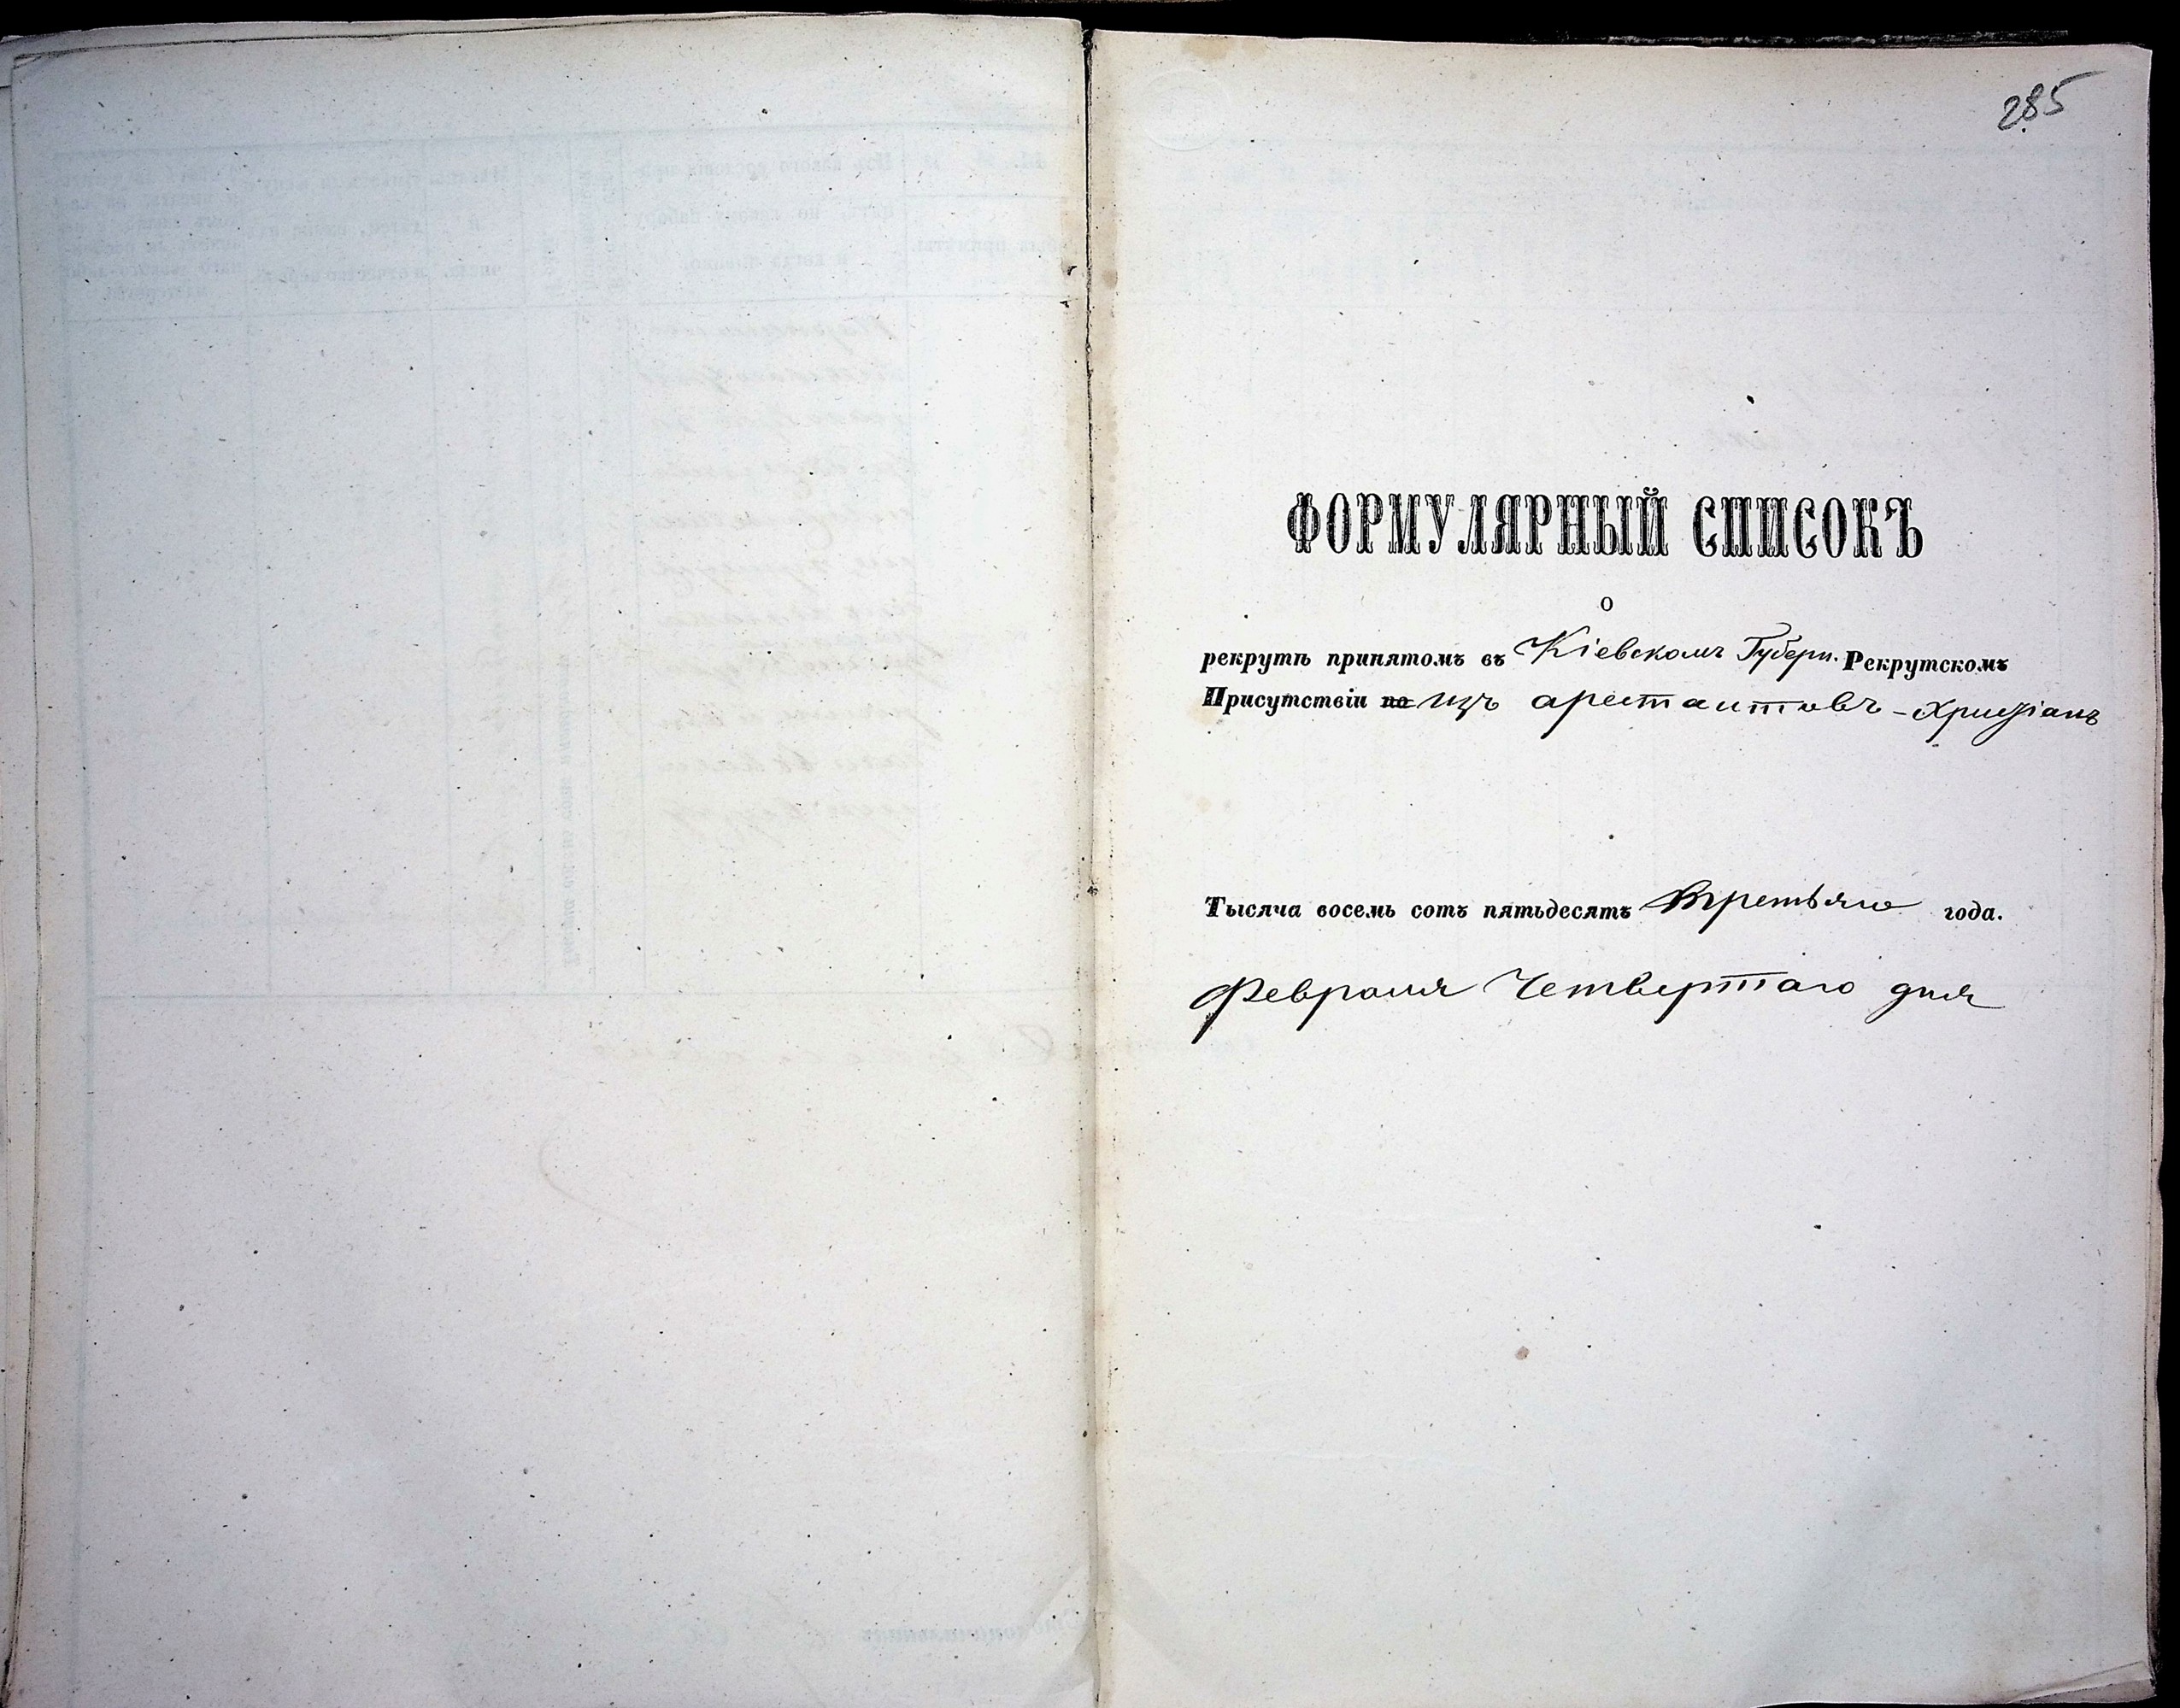 285
ФОРМУЛЯРНЫЙ СПИСОКЪ
о
рекрутѣ принятомъ въ Кіевскомъ Губерн. Рекрутскомъ
Присутствіи по изъ арестантовъ - Христіанъ
Тысяча восемь сотъ пятьдесятъ третьяго года.
Февраля Четвертаго дня